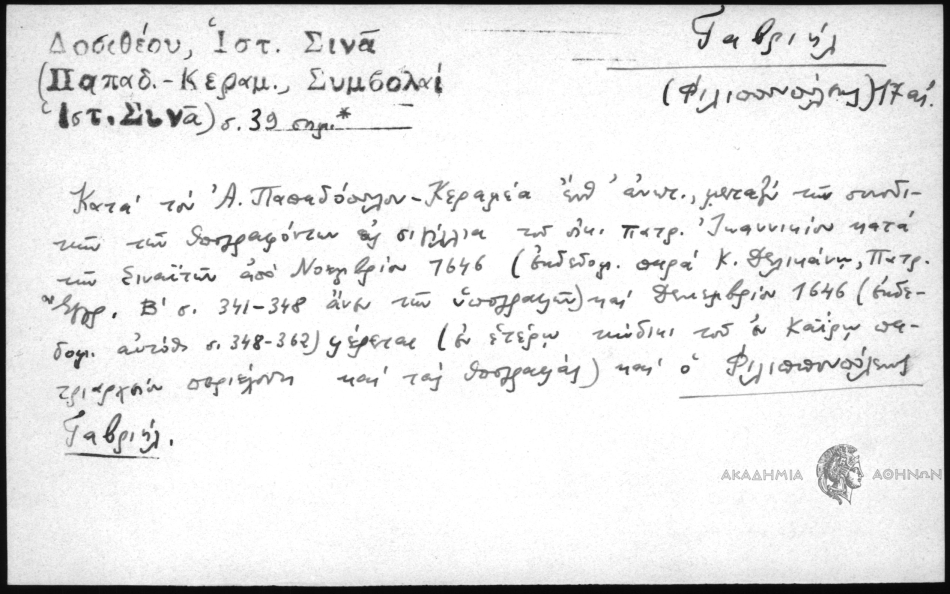 Δοσιθέου, Ἱστ. Σινᾶ
(Παπαδ.-Κεραμ., Συμβολαί
Ἱστ. Σινᾶ) σ. 39 σημ.*
Γαβριήλ
(Φιλιππουπόλεως) 17 αἰ.
Κατά τόν Ἀ. Παπαδόπουλον-Κεραμέα ἔνθ' ἀνωτ., μεταξύ τῶν συνοδι-
κῶν τῶν ὑπογραφόντων εἰς σιγίλλια τοῦ οἰκ. πατρ. Ἰωαννικίου κατά
τῶν Σιναϊτῶν ἀπό Νοεμβρίου 1646 (ἐκδεδομ. παρά Κ. Δελικάνῃ, Πατρ.
Ἔγγρ. Β' σ. 341-348 ἄνευ τῶν ὑπογραφῶν) καί Δεκεμβρίου 1646 (ἐκδε-
δομ. αὐτόθι σ. 348-362) φέρεται (ἐν ἑτέρῳ κώδικι τοῦ ἐν Καΐρῳ πα-
τριαρχείου περιέχοντι καί τάς ὑπογραφάς) καί ὁ Φιλιππουπόλεως
Γαβριήλ.
ΑΚΑΔΗΜΙΑ ΑΘΗΝΩΝ